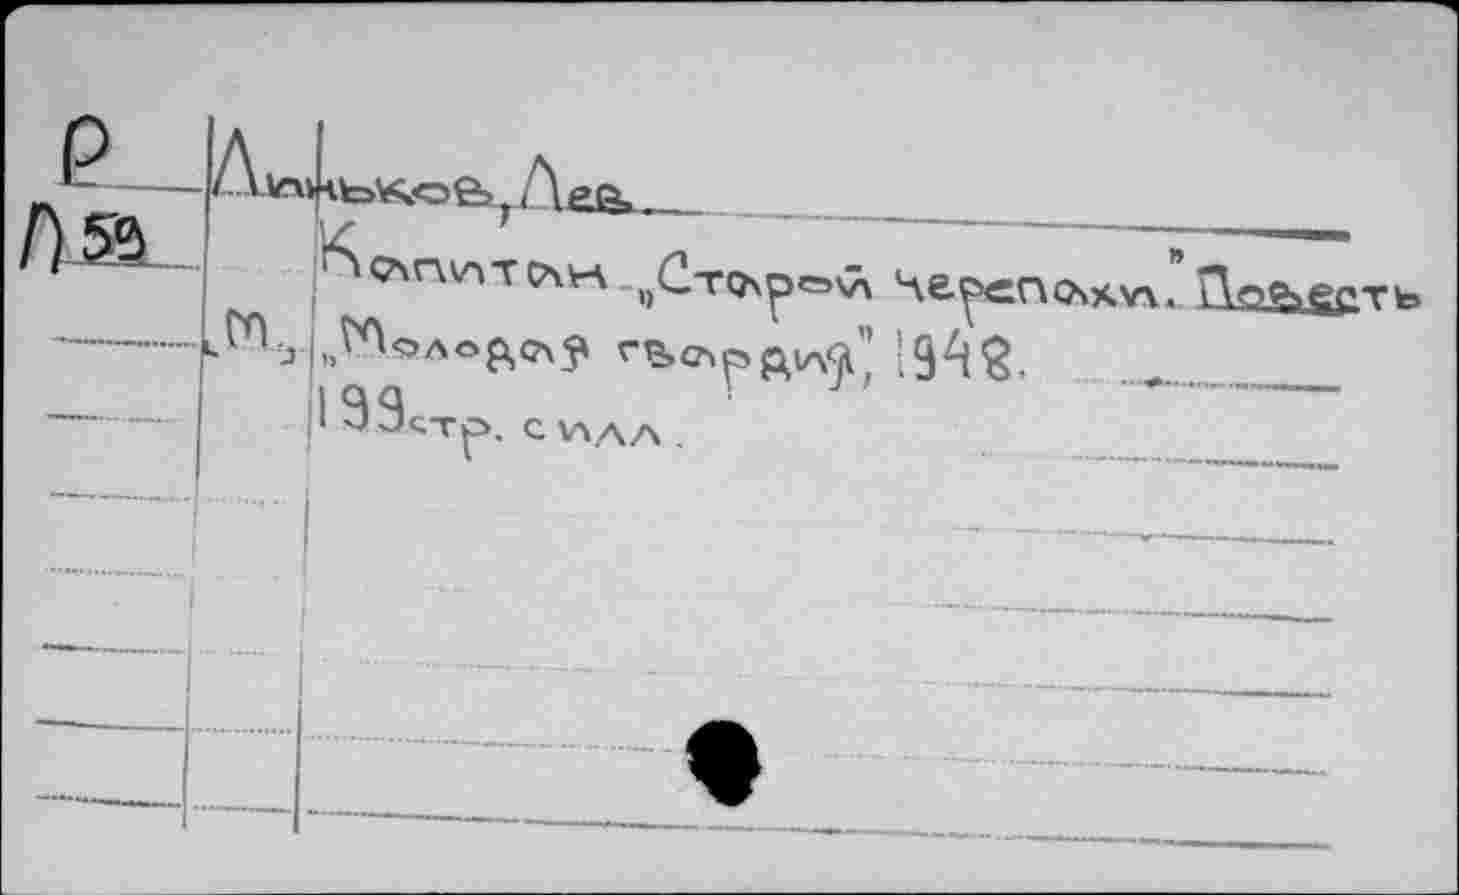 Р Линьков, Лев.
Л59 Капитан „Старой черепахи." Повесть
М., „Молодая гвардия", 1948.
199стр. с илл.